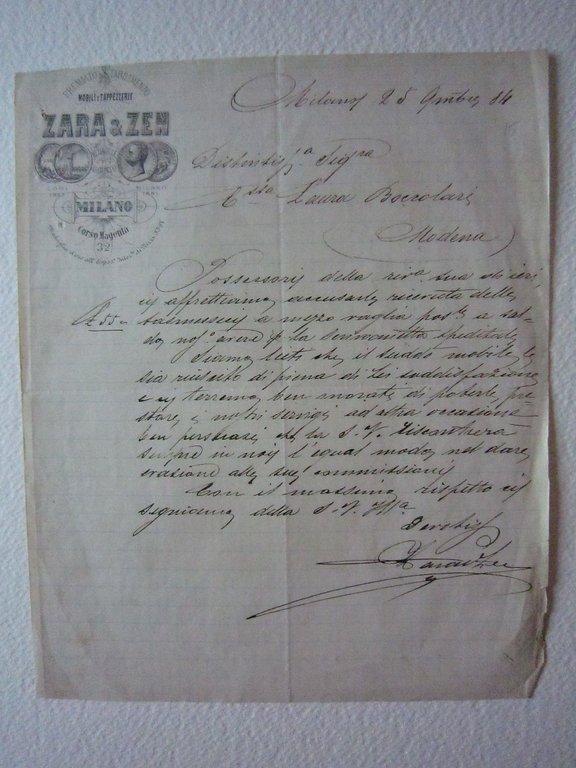 MOBILI E TAPPEZZERIE
ZARA & ZEN
LODI
MILANO
1881
MILANO
Corso Magenta
32
Milano 25 9mbre 84
Distintiss.a Sigra
Laura Boccolari
Modena
Possessori della riv.a sua di ieri,
ci affrettiamo accusarle ricevuta delle
£ 55 =
a mezzo vaglia post.e a sal-
do nos. avere p. la spedita
Siamo lieti che il sudd.o mobile le
sia riuscito di piena di Lei soddisfazione
e ci terremo ben onorati di poterle pre
stare i nostri servigi ad altra occasione
ben persuasi che la S.V. riscontrerà
sempre in noi l'egual modo nel dare
evazione alle sue commissioni
Con il massimo rispetto ci
segniamo della S.V. Ill.a
Devotiss.
Zara & Zen